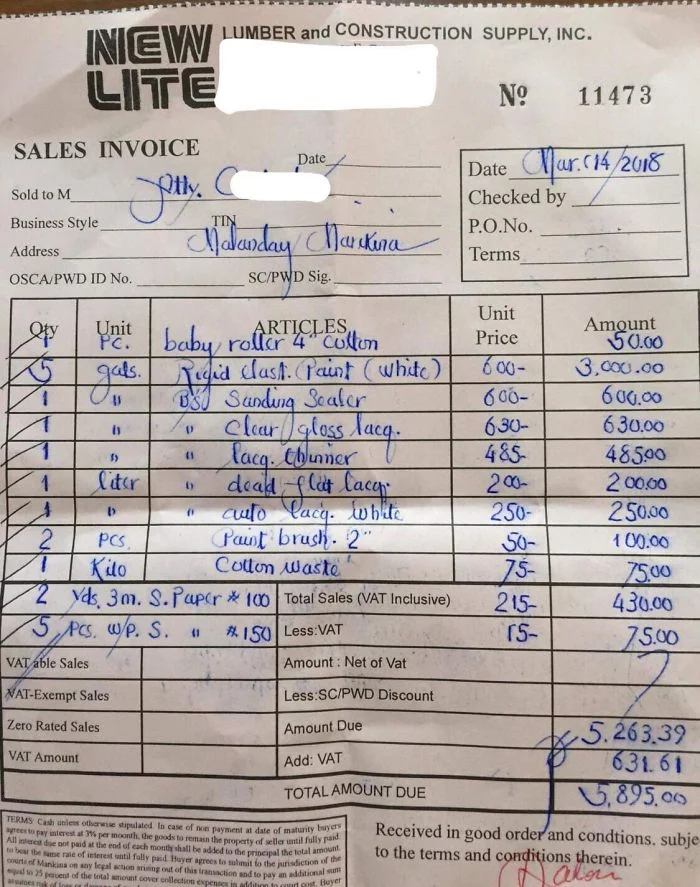 NEW LITE LUMBER and CONSTRUCTION SUPPLY, INC.
Nº 11473
SALES INVOICE
Date
Sold to M
Business Style TIN
Address Malanday Marikina
OSCA/PWD ID No. SC/PWD Sig.
Date Mar. 14/2018
Checked by
P.O.No.
Terms
Qty Unit ARTICLES Unit Price Amount
1 Pc. baby roller 4" cotton 50.00
5 gals. Rigid Elast. Paint (white) 600- 3,000.00
1 " BSJ Sanding Sealer 600- 600.00
1 " " Clear gloss lacq. 630- 630.00
1 " " lacq. thinner 485- 485.00
1 liter " dead flat lacq. 200- 200.00
1 " " auto lacq. white 250- 250.00
2 pcs. Paint brush. 2" 50- 100.00
1 Kilo Cotton waste 75- 75.00
2 yds. 3m. S. Paper # 100 Total Sales (VAT Inclusive) 215- 430.00
5 pcs. w/p. S. " # 150 Less:VAT 15- 75.00
VATable Sales Amount : Net of Vat
VAT-Exempt Sales Less:SC/PWD Discount
Zero Rated Sales Amount Due 5,263.39
VAT Amount Add: VAT 631.61
TOTAL AMOUNT DUE 5,895.00
TERMS: Cash unless otherwise stipulated. In case of non payment at date of maturity buyers
agrees to pay interest at 3% per moonth, the goods to remain the property of seller until fully paid.
All interest due not paid at the end of each month shall be added to the principal the total amount.
to bear the same rate of interest until fully paid. Buyer agrees to submit to the jurisdiction of the
courts of Marikina on any legal action arising out of this transaction and to pay an additional sum
equal to 25 percent of the total amount cover collection expenses in addition to court cost. Buyer
Received in good order and condtions. subje
to the terms and conditions therein.